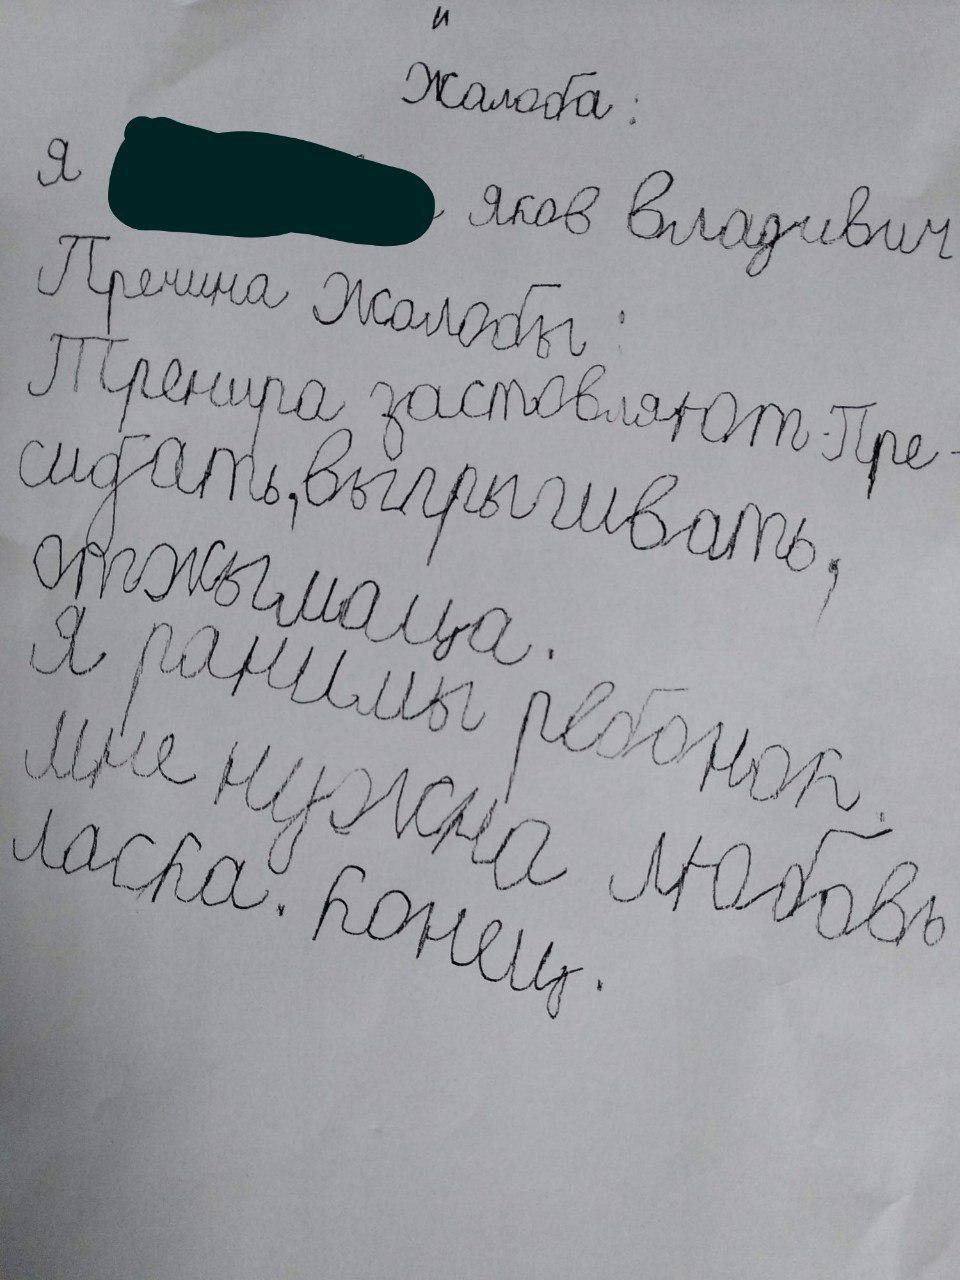 и
Жалоба:
Я Яков Владивич
Пречина Жалобы:
Тренира заставляют Пре-
сидать, выпрыгивать,
отжымаца.
Я ранимы ребонок.
мне нужна любовь
ласка. Конец.